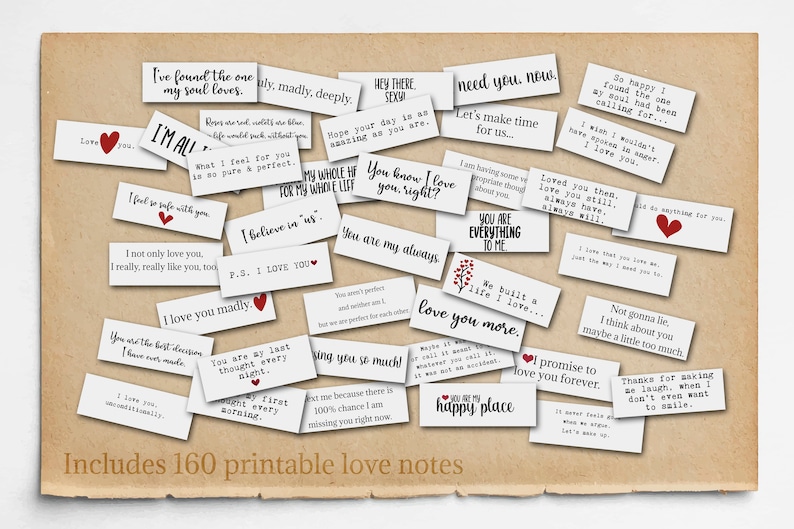 I've found the one
my soul loves.
uly, madly, deeply.
HEY THERE,
SEXY!
need you, now.
So happy I
found the one
my soul had been
calling for...
Love you.
I'M ALL
Roses are red, violets are blue,
life would suck, without you.
Hope your day is as
amazing as you are.
Let's make time
for us...
I wish I wouldn't
have spoken in anger.
I love you.
What I feel for you
is so pure & perfect.
MY WHOLE HE
FOR MY WHOLE LIFE
You know I love
you, right?
I am having some ve
propriate though
about you.
Loved you then,
love you still,
always have,
always will.
ld do anything for you.
I feel so safe with you.
I believe in "us".
YOU ARE
EVERYTHING
TO ME.
You are my always.
I not only love you,
I really, really like you, too.
P.S. I LOVE YOU
I love that you love me,
just the way I need you to.
We built a
life I love...
I love you madly.
You aren't perfect
and neither am I,
but we are perfect for each other.
love you more.
Not gonna lie,
I think about you
maybe a little too much.
You are the best decision
I have ever made.
You are my last
thought every
night.
sing you so much!
Maybe it w
or call it meant to
whatever you call it,
it was not an accident.
I promise to
love you forever.
Thanks for making
me laugh, when I
don't even want
to smile.
I love you,
unconditionally.
my first
ought every
morning.
ext me because there is
100% chance I am
missing you right now.
YOU ARE MY
happy place
It never feels go
when we argue.
Let's make up.
Includes 160 printable love notes